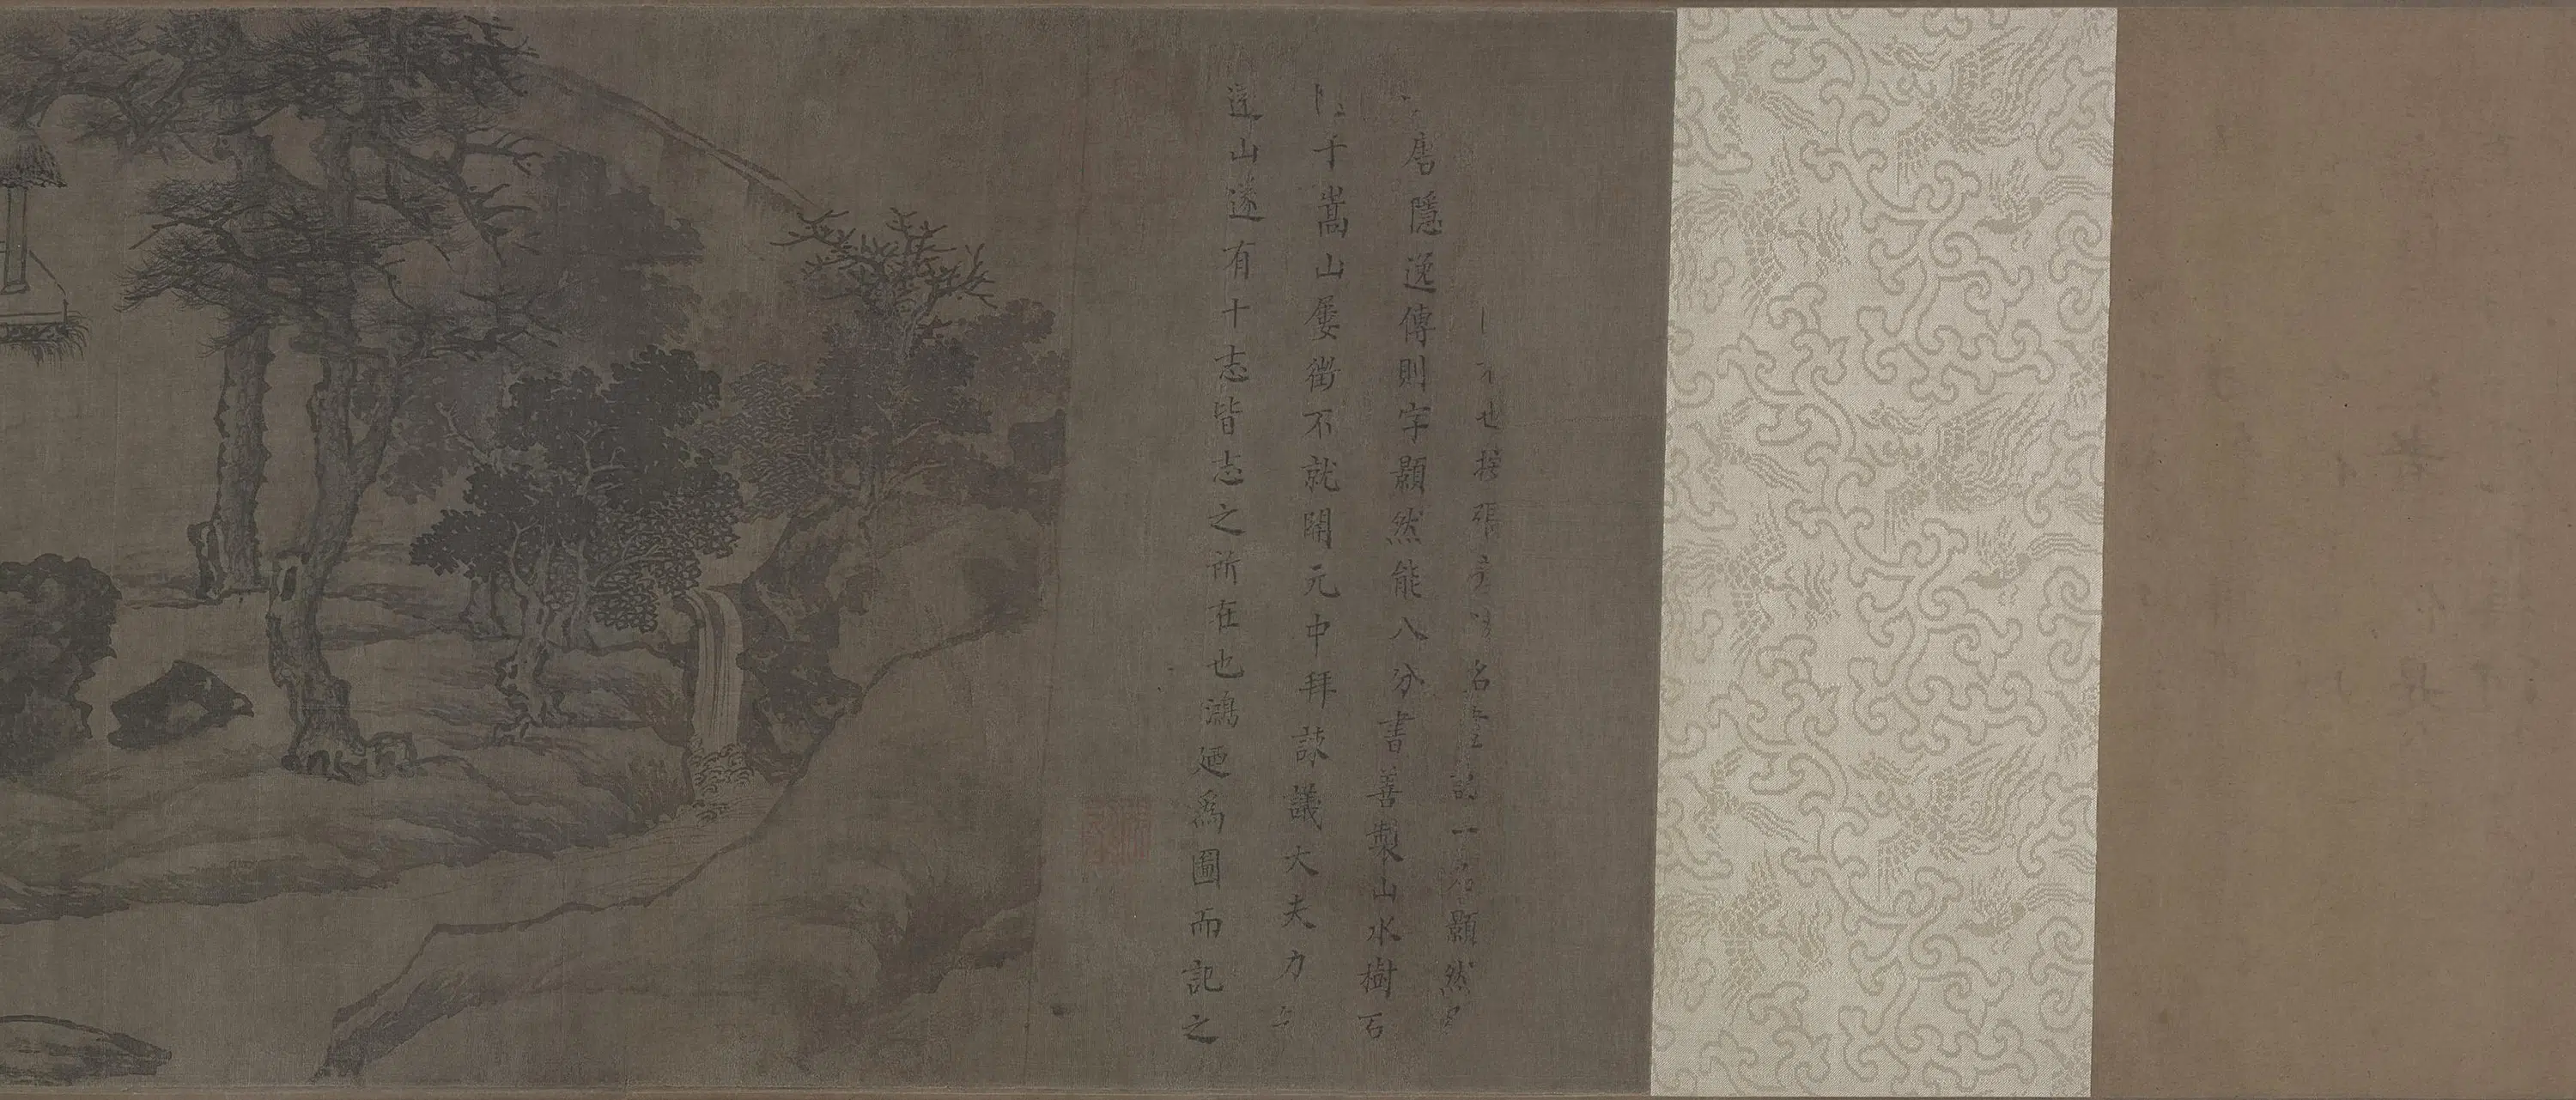 也按張彥遠名畫記一名顥然
唐隱逸傳則字顥然能八分書善製山水樹石
于嵩山屢徵不就開元中拜諫議大夫力
還山遂有十志皆志之所在也鴻廼為圖而記之